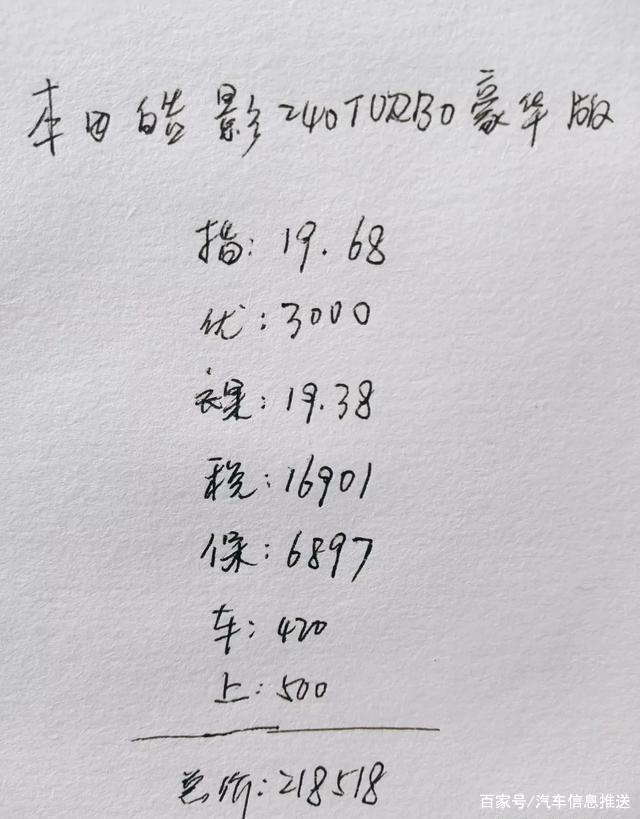 本田皓影240TURBO豪华版
指: 19.68
优: 3000
裸: 19.38
税: 16901
保: 6897
车: 420
上: 500
总价: 218518
百家号/汽车信息推送